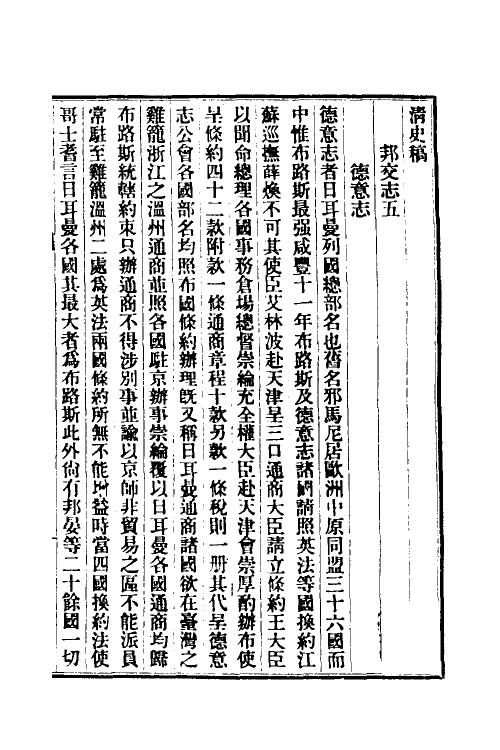 清史稿
邦交志五
德意志
德意志者日耳曼列國總部名也舊名邪馬尼居歐洲中原同盟三十六國而
中惟布路斯最强咸豐十一年布路斯及德意志諸國請照英法等國換約江
蘇巡撫薛煥不可其使臣艾林波赴天津呈三口通商大臣請立條約王大臣
以聞命總理各國事務倉場總督崇綸充全權大臣赴天津會崇厚酌辦布使
呈條約四十二款附款一條通商章程十款另款一條稅則一册其代呈德意
志公會各國部名均照布國條約辦理旣又稱日耳曼通商諸國欲在臺灣之
雞籠浙江之溫州通商並照各國駐京辦事崇綸覆以日耳曼各國通商均歸
布路斯統轄約束只辦通商不得涉別事並諭以京師非貿易之區不能派員
常駐至雞籠溫州二處爲英法兩國條約所無不能增益時當四國換約法使
哥士耆言日耳曼各國其最大者爲布路斯此外尙有邦晏等二十餘國一切